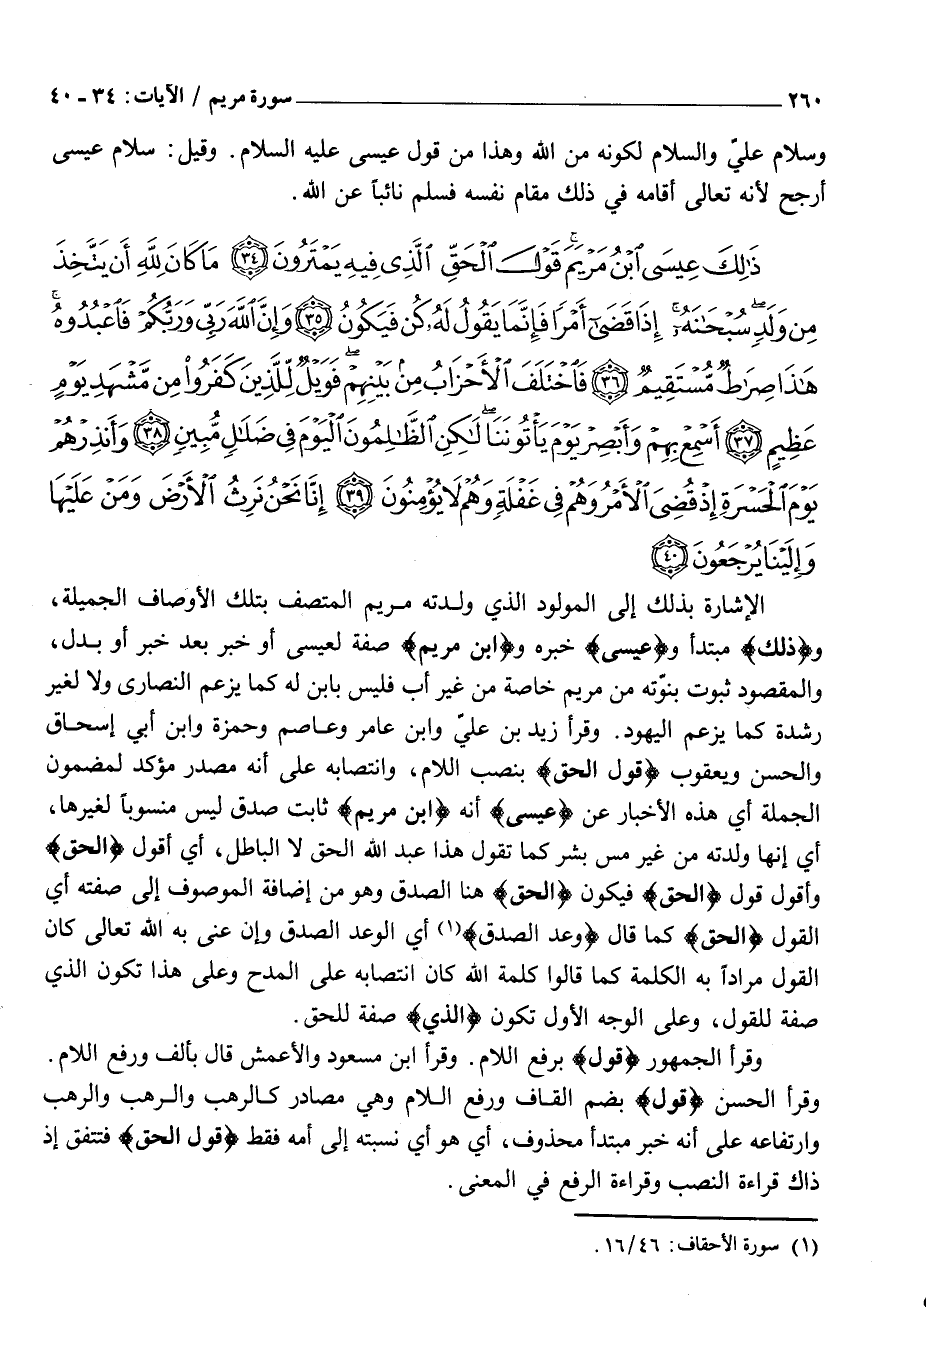 ٢٦٠ ــــــ سورة مريم / الآيات: ٣٤ - ٤٠
وسلام عليّ والسلام لكونه من الله وهذا من قول عيسى عليه السلام. وقيل: سلام عيسى
أرجح لأنه تعالى أقامه في ذلك مقام نفسه فسلم نائباً عن الله.
ذَٰلِكَ عِيسَى ٱبْنُ مَرْيَمَ ۚ قَوْلَ ٱلْحَقِّ ٱلَّذِى فِيهِ يَمْتَرُونَ ﴿٣٤﴾ مَا كَانَ لِلَّهِ أَن يَتَّخِذَ
مِن وَلَدٍ ۖ سُبْحَٰنَهُۥٓ ۚ إِذَا قَضَىٰٓ أَمْرًا فَإِنَّمَا يَقُولُ لَهُۥ كُن فَيَكُونُ ﴿٣٥﴾ وَإِنَّ ٱللَّهَ رَبِّى وَرَبُّكُمْ فَٱعْبُدُوهُ ۚ
هَٰذَا صِرَٰطٌ مُّسْتَقِيمٌ ﴿٣٦﴾ فَٱخْتَلَفَ ٱلْأَحْزَابُ مِنۢ بَيْنِهِمْ ۖ فَوَيْلٌ لِّلَّذِينَ كَفَرُوا۟ مِن مَّشْهَدِ يَوْمٍ
عَظِيمٍ ﴿٣٧﴾ أَسْمِعْ بِهِمْ وَأَبْصِرْ يَوْمَ يَأْتُونَنَا ۖ لَٰكِنِ ٱلظَّٰلِمُونَ ٱلْيَوْمَ فِى ضَلَٰلٍ مُّبِينٍ ﴿٣٨﴾ وَأَنذِرْهُمْ
يَوْمَ ٱلْحَسْرَةِ إِذْ قُضِىَ ٱلْأَمْرُ وَهُمْ فِى غَفْلَةٍ وَهُمْ لَا يُؤْمِنُونَ ﴿٣٩﴾ إِنَّا نَحْنُ نَرِثُ ٱلْأَرْضَ وَمَنْ عَلَيْهَا
وَإِلَيْنَا يُرْجَعُونَ ﴿٤٠﴾
الإشارة بذلك إلى المولود الذي ولدته مريم المتصف بتلك الأوصاف الجميلة،
و﴿ذلك﴾ مبتدأ و﴿عيسى﴾ خبره و﴿ابن مريم﴾ صفة لعيسى أو خبر بعد خبر أو بدل،
والمقصود ثبوت بنوّته من مريم خاصة من غير أب فليس بابن له كما يزعم النصارى ولا لغير
رشدة كما يزعم اليهود. وقرأ زيد بن عليّ وابن عامر وعاصم وحمزة وابن أبي إسحاق
والحسن ويعقوب ﴿قول الحق﴾ بنصب اللام، وانتصابه على أنه مصدر مؤكد لمضمون
الجملة أي هذه الأخبار عن ﴿عيسى﴾ أنه ﴿ابن مريم﴾ ثابت صدق ليس منسوباً لغيرها،
أي إنها ولدته من غير مس بشر كما تقول هذا عبد الله الحق لا الباطل، أي أقول ﴿الحق﴾
وأقول قول ﴿الحق﴾ فيكون ﴿الحق﴾ هنا الصدق وهو من إضافة الموصوف إلى صفته أي
القول ﴿الحق﴾ كما قال ﴿وعد الصدق﴾(١) أي الوعد الصدق وإن عنى به الله تعالى كان
القول مراداً به الكلمة كما قالوا كلمة الله كان انتصابه على المدح وعلى هذا تكون الذي
صفة للقول، وعلى الوجه الأول تكون ﴿الذي﴾ صفة للحق.
وقرأ الجمهور ﴿قول﴾ برفع اللام. وقرأ ابن مسعود والأعمش قال بألف ورفع اللام.
وقرأ الحسن ﴿قول﴾ بضم القاف ورفع اللام وهي مصادر كالرهب والرهب والرهب
وارتفاعه على أنه خبر مبتدأ محذوف، أي هو أي نسبته إلى أمه فقط ﴿قول الحق﴾ فتتفق إذ
ذاك قراءة النصب وقراءة الرفع في المعنى.
(١) سورة الأحقاف: ١٦/٤٦.